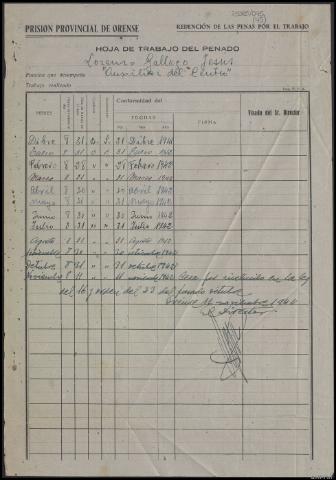 PRISION PROVINCIAL DE ORENSE
REDENCIÓN DE LAS PENAS POR EL TRABAJO
HOJA DE TRABAJO DEL PENADO
Lorenzo Gallego Jesus
Función que desempeña "Auxiliar del Centro"
Trabajo realizado
MESES
Conformidad del
FECHAS
FIRMA
Visado del Sr. Director
Dicbre 8 31 31 Dicbre 1941
Enero 8 31 31 Enero 1942
Febrero 8 28 28 Febrero 1942
Marzo 8 31 31 Marzo 1942
Abril 8 30 30 abril 1942
Mayo 8 31 31 Mayo 1942
Junio 8 30 30 Junio 1942
Julio 8 31 31 Julio 1942
Agosto 8 31 31 Agosto 1942
Septiembre 8 30 30 septiembre 1942
Octubre 8 31 31 octubre 1942
Noviembre 8 11 11 noviembre 1942 Cesa por incluido en la ley
del 16 y orden del 22 del pasado octubre
Orense 11 noviembre 1942
El Director